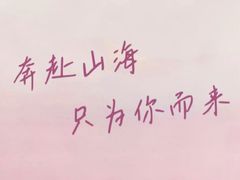 奔赴山海
只为你而来